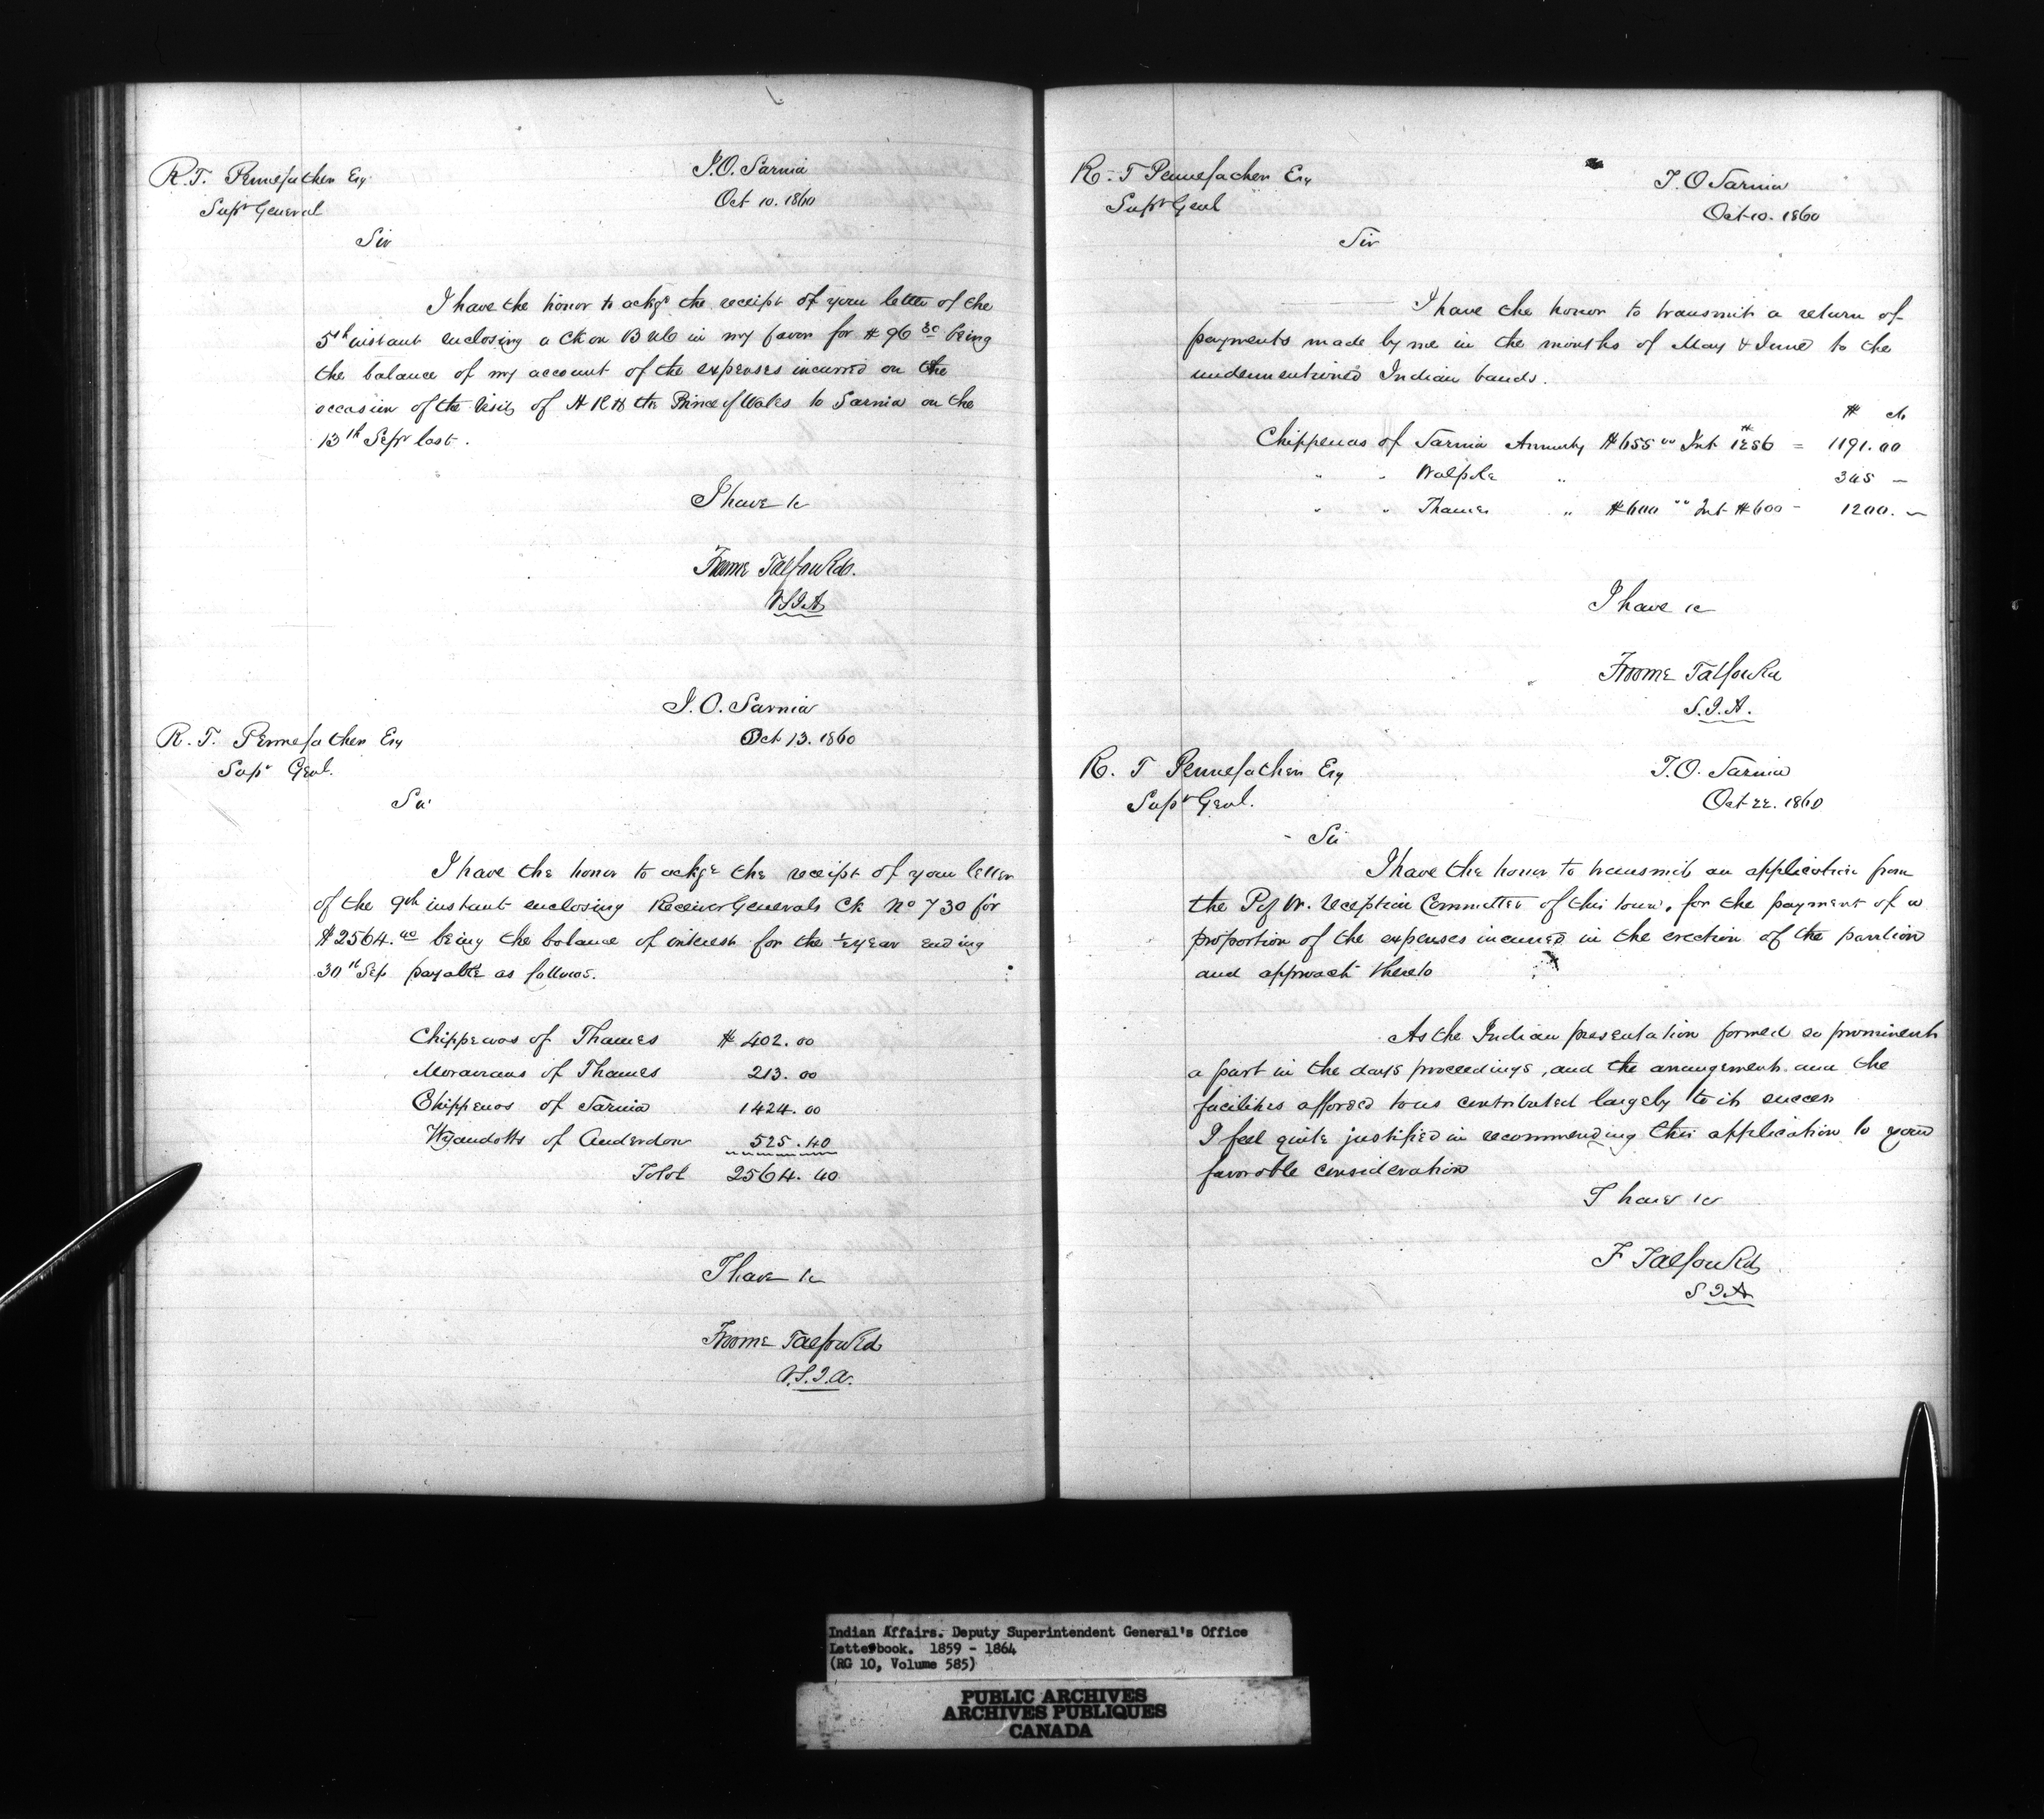 R. T. Pennefather Esq
Supt General
I. O. Sarnia
Oct 10. 1860
Sir
I have the honor to ackge the receipt of your letter of the
5th instant enclosing a Ck on B UC in my favor for $96 30 being
the balance of my account of the expenses incurred on the
occasion of the visit of H R H the Prince of Wales to Sarnia on the
13th Sepr last.
I have &c
Froome Talfourd.
V.S.I.A
I. O. Sarnia
Oct 13. 1860
R. T. Pennefather Esq
Supt Genl.
Sir
I have the honor to ackge the receipt of your letter
of the 9th instant enclosing Receiver Generals Ck No 730 for
$2564.40 being the balance of interest for the ½ year ending
30th Sep payable as follows.
Chippewas of Thames $ 402.00
Moravians of Thames 213.00
Chippewas of Sarnia 1424.00
Wyandotts of Anderdon 525.40
Total 2564.40
I have &c
Froome Talfourd
V.S.I.A.
R. T Pennefather Esq
Supt Genl
I. O Sarnia
Oct 10. 1860
Sir
I have the honor to transmit a return of
payments made by me in the months of May & June to the
undermentioned Indian bands.
$ cts
Chippewas of Sarnia Annuity $655 00 Int = 1191.00
" " Walpole " 345 —
" " Thames " $600 " Int $600 - 1200. —
I have &c
Froome Talfourd
S.I.A.
R. T Pennefather Esq
Supt Genl.
I. O. Sarnia
Oct 22. 1860
Sir
I have the honor to transmit an application from
the P of W. reception Committee of this town, for the payment of a
proportion of the expenses incurred in the erection of the pavilion
and approach thereto
As the Indian presentation formed so prominent
a part in the days proceedings, and the arrangements and the
facilities afforded to us contributed largely to its success
I feel quite justified in recommending this application to your
favorable consideration
I have &c
F Talfourd
S I A
Indian Affairs. Deputy Superintendent General's Office
Letterbook. 1859 - 1864
(RG 10, Volume 585)
PUBLIC ARCHIVES
ARCHIVES PUBLIQUES
CANADA